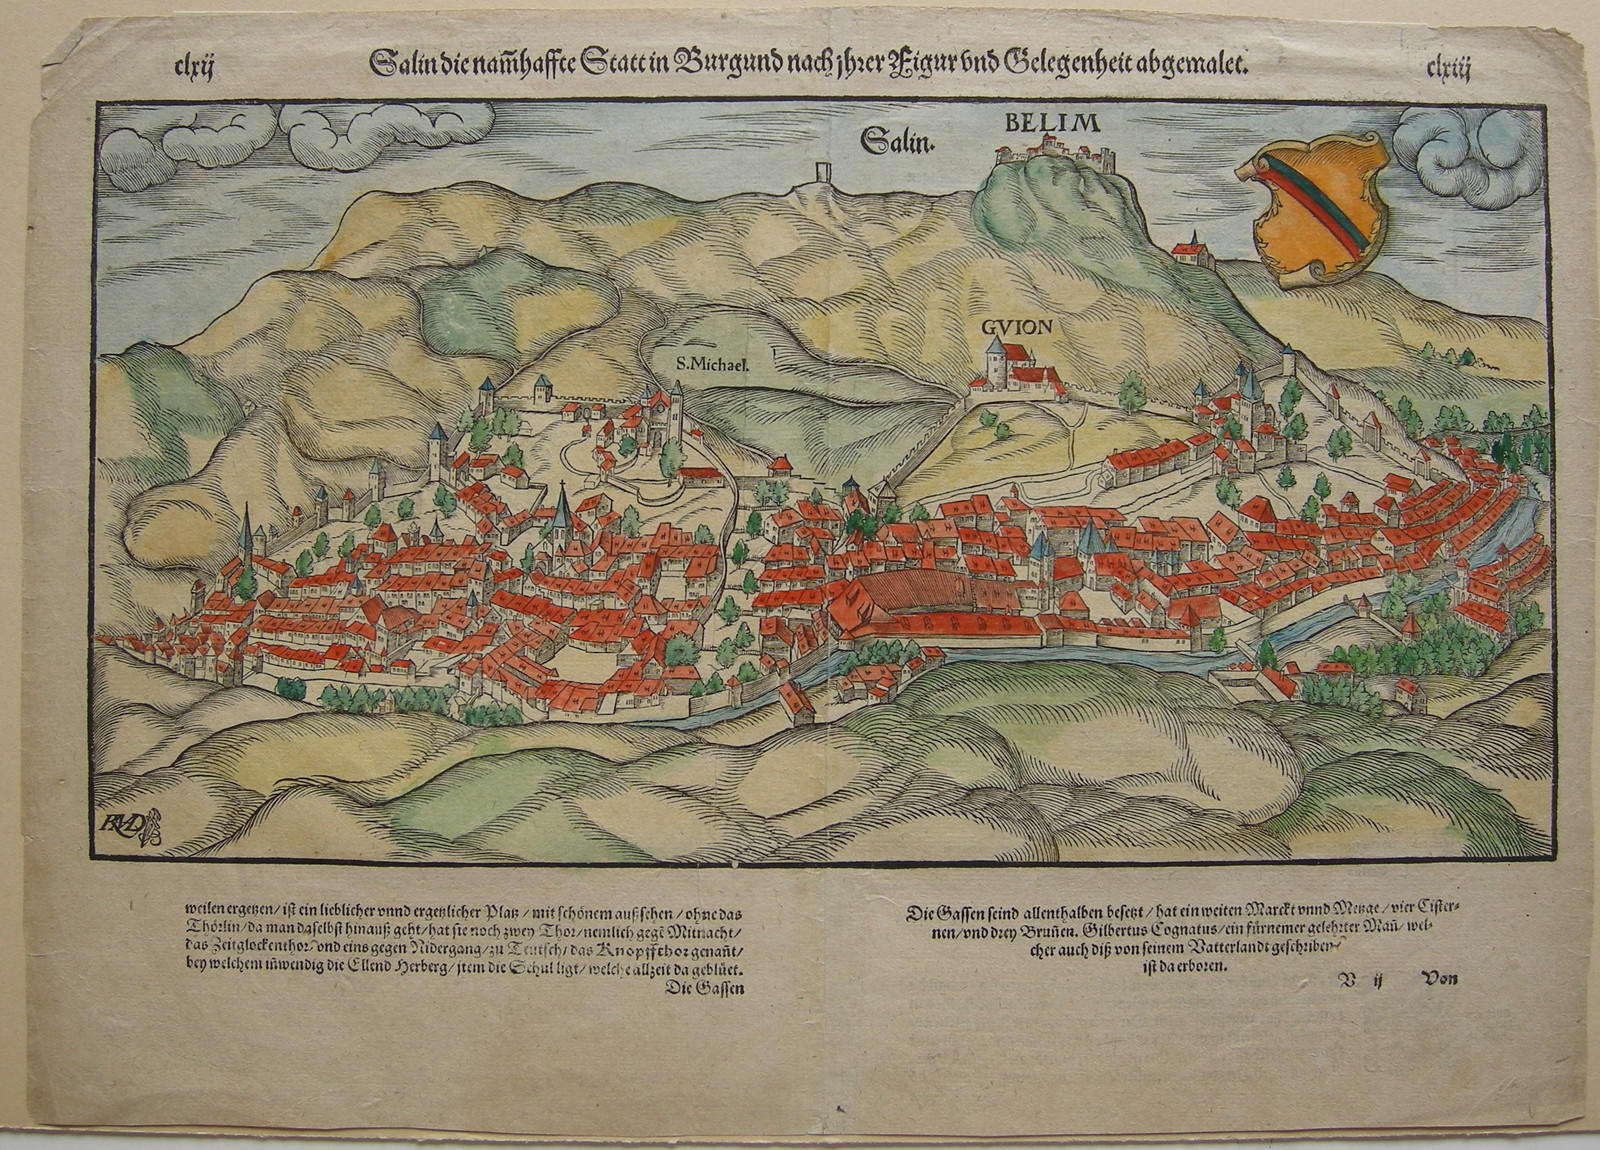 clxij
Salin die nam̃haffte Statt in Burgund nach jhrer Figur vnd Gelegenheit abgemalet.
clxiij
BELIM
Salin.
GVION
S. Michael.
RMD
weilen ergetzen/ ist ein lieblicher vnnd ergetzlicher Platz/ mit schönem außsehen/ ohne das
Thörlin/ da man daselbst hinauß geht/ hat sie noch zwey Thor/ nemlich gegẽ Mitnacht/
das Zeitglockenthor/ vnd eins gegen Nidergang/ zu Teutsch/ das Knopffthor genañt/
bey welchem iñwendig die Ellend Herberg/ jtem die Schul ligt/ welche allzeit da geblüet.
Die Gassen
Die Gassen seind allenthalben besetzt/ hat ein weiten Marckt vnnd Metzge/ vier Cister-
nen/ vnd drey Bruñen. Gilbertus Cognatus/ ein fürnemer gelehrter Mañ/ wel-
cher auch diß von seinem Vatterland geschriben/
ist da erboren.
V ij
Von